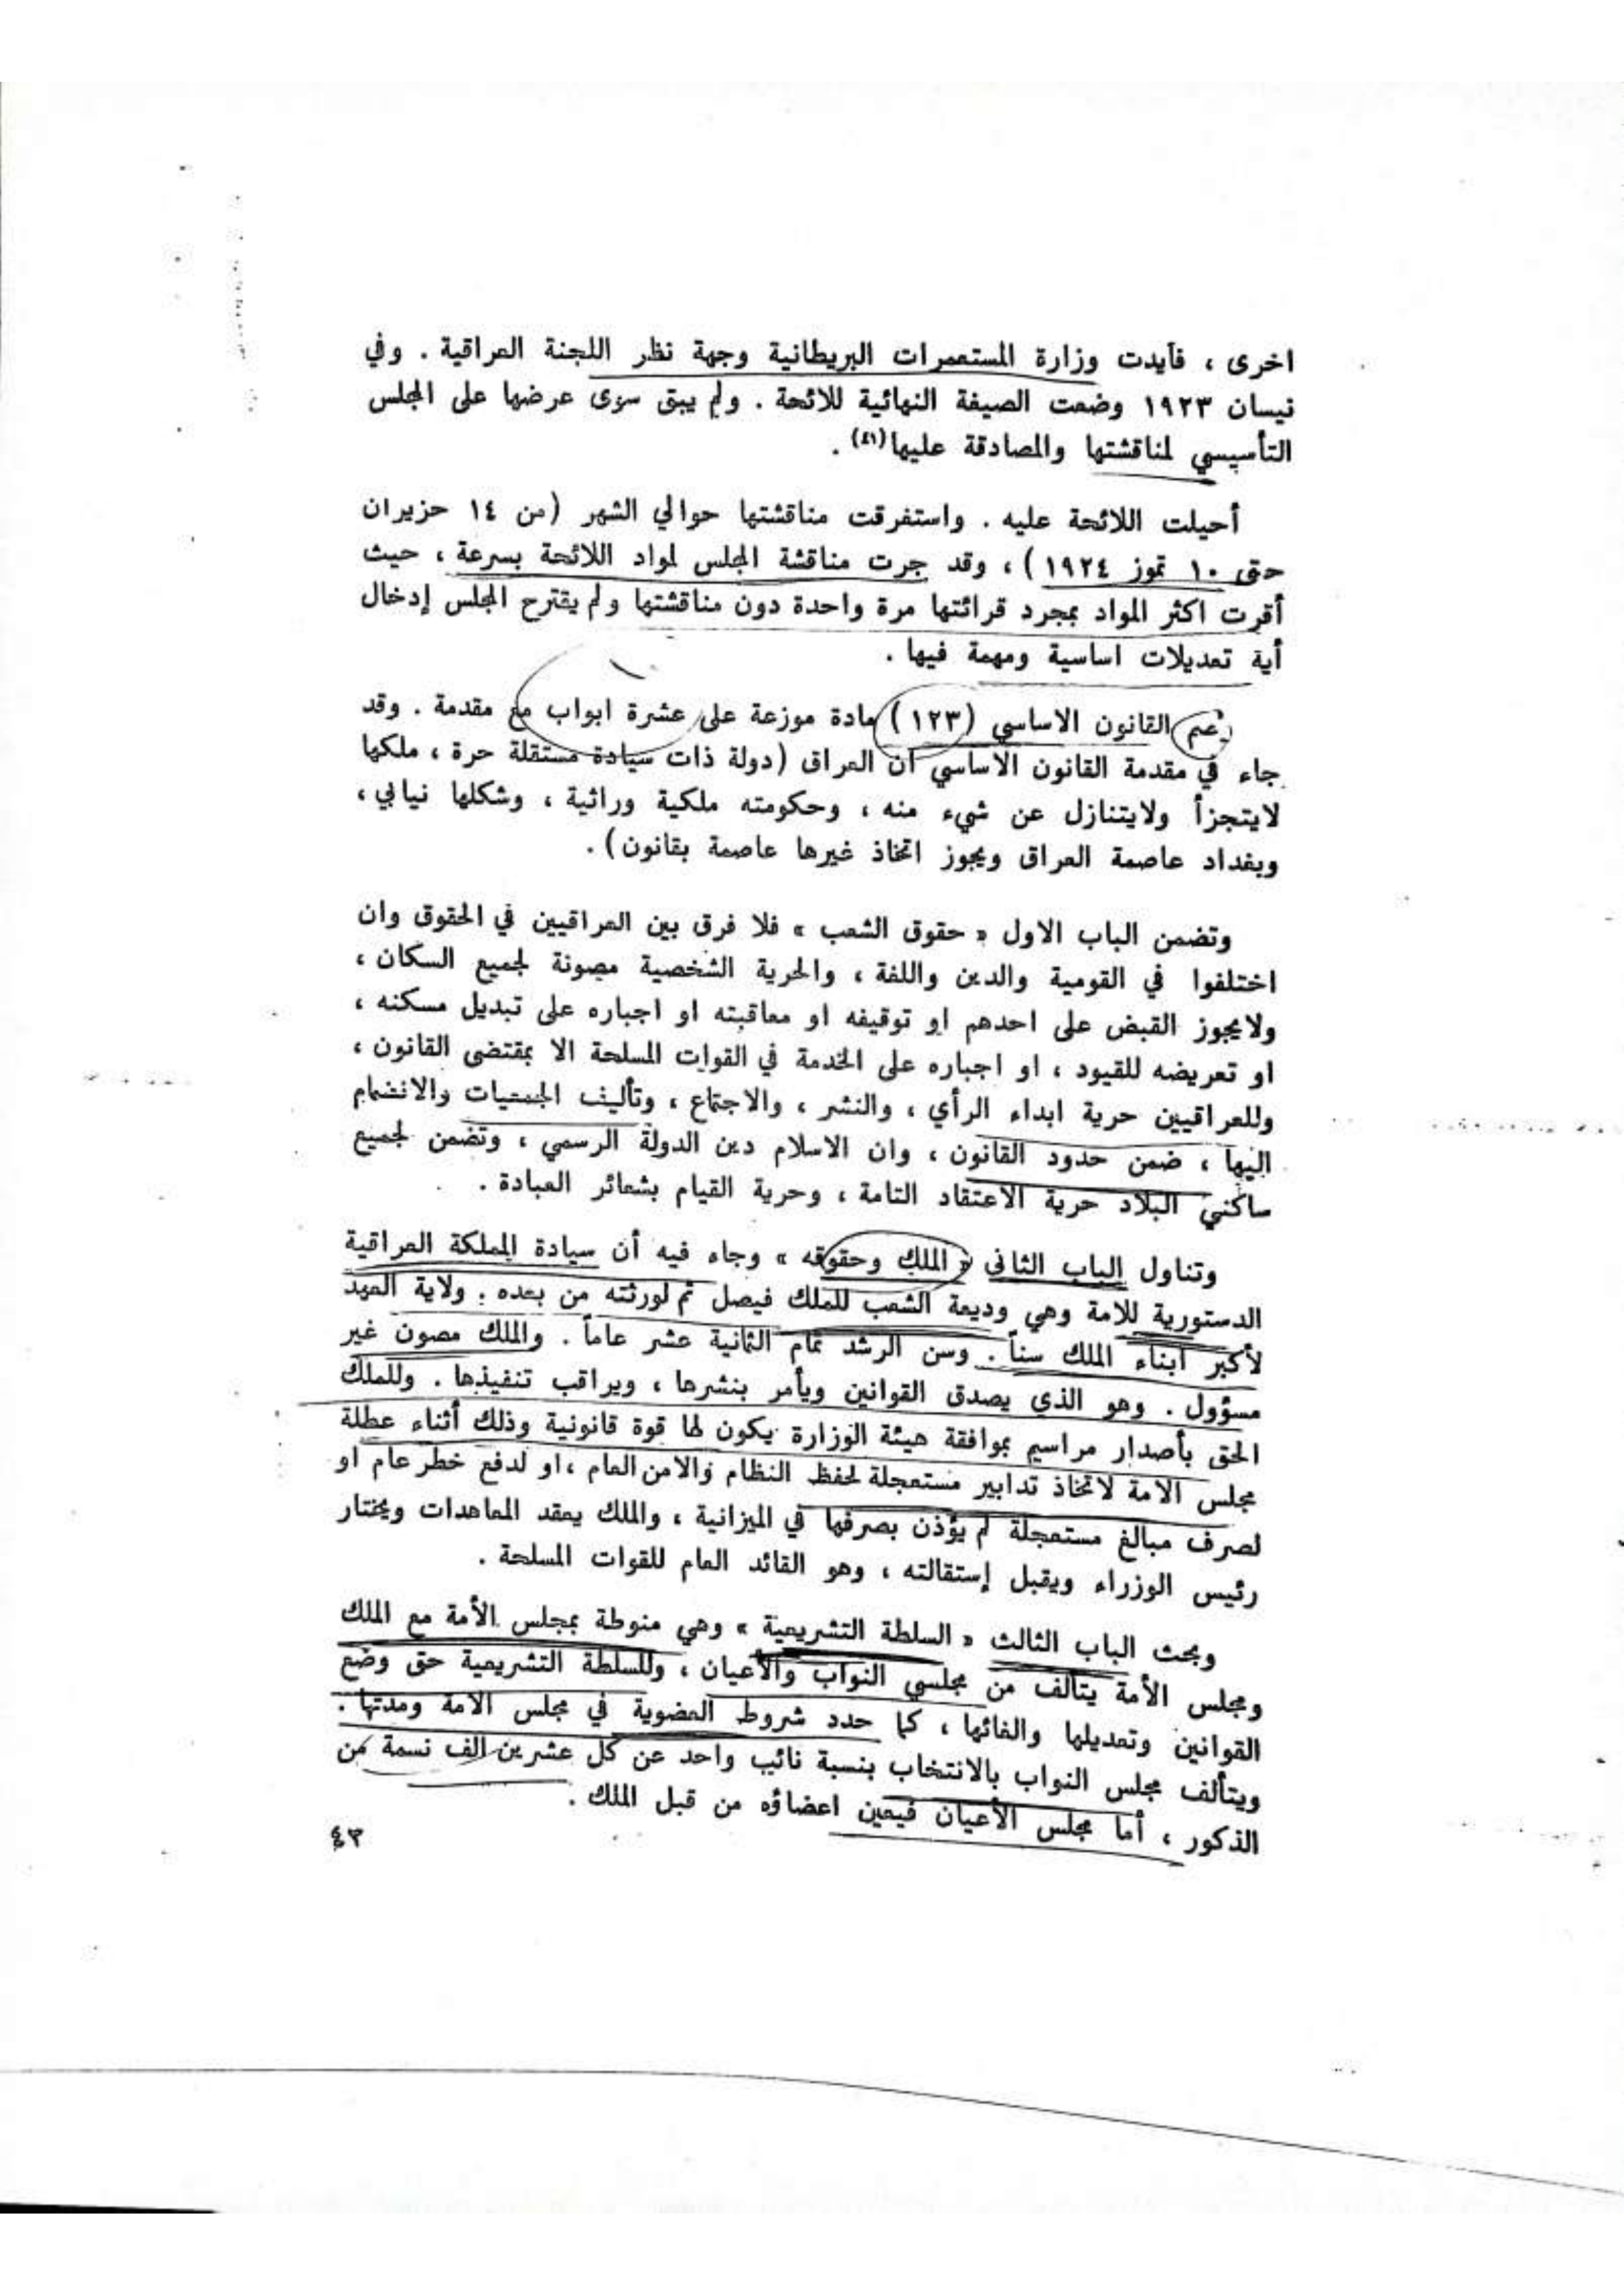 اخرى ، فأيدت وزارة المستعمرات البريطانية وجهة نظر اللجنة العراقية . وفي
نيسان ١٩٢٣ وضعت الصيغة النهائية للائحة . ولم يبق سوى عرضها على المجلس
التأسيسي لمناقشتها والمصادقة عليها(٤١) .
أحيلت اللائحة عليه . واستغرقت مناقشتها حوالي الشهر (من ١٤ حزيران
حتى ١٠ تموز ١٩٢٤) ، وقد جرت مناقشة المجلس لمواد اللائحة بسرعة ، حيث
أقرت اكثر المواد بمجرد قرائتها مرة واحدة دون مناقشتها ولم يقترح المجلس إدخال
أية تعديلات اساسية ومهمة فيها .
القانون الاساسي (١٢٣) مادة موزعة على عشرة ابواب مع مقدمة . وقد
جاء في مقدمة القانون الاساسي ان العراق (دولة ذات سيادة مستقلة حرة ، ملكها
لايتجزأ ولايتنازل عن شيء منه ، وحكومته ملكية وراثية ، وشكلها نيابي ،
وبغداد عاصمة العراق ويجوز اتخاذ غيرها عاصمة بقانون) .
وتضمن الباب الاول « حقوق الشعب » فلا فرق بين العراقيين في الحقوق وان
اختلفوا في القومية والدين واللغة ، والحرية الشخصية مصونة لجميع السكان ،
ولايجوز القبض على احدهم او توقيفه او معاقبته او اجباره على تبديل مسكنه ،
او تعريضه للقيود ، او اجباره على الخدمة في القوات المسلحة الا بمقتضى القانون ،
وللعراقيين حرية ابداء الرأي ، والنشر ، والاجتماع ، وتأليف الجمعيات والانضمام
اليها ، ضمن حدود القانون ، وان الاسلام دين الدولة الرسمي ، وتضمن لجميع
ساكني البلاد حرية الاعتقاد التامة ، وحرية القيام بشعائر العبادة .
وتناول الباب الثاني « الملك وحقوقه » وجاء فيه أن سيادة المملكة العراقية
الدستورية للامة وهي وديعة الشعب للملك فيصل ثم لورثته من بعده . ولاية العهد
لأكبر ابناء الملك سناً . وسن الرشد تمام الثانية عشر عاماً . والملك مصون غير
مسؤول . وهو الذي يصدق القوانين ويأمر بنشرها ، ويراقب تنفيذها . وللملك
الحق بأصدار مراسيم بموافقة هيئة الوزارة يكون لها قوة قانونية وذلك أثناء عطلة
مجلس الامة لاتخاذ تدابير مستعجلة لحفظ النظام والامن العام ، او لدفع خطر عام او
لصرف مبالغ مستعجلة لم يؤذن بصرفها في الميزانية ، والملك يعقد المعاهدات ويختار
رئيس الوزراء ويقبل إستقالته ، وهو القائد العام للقوات المسلحة .
وبحث الباب الثالث « السلطة التشريعية » وهي منوطة بمجلس الأمة مع الملك
ومجلس الأمة يتألف من مجلسي النواب والأعيان ، وللسلطة التشريعية حق وضع
القوانين وتعديلها والغائها ، كما حدد شروط العضوية في مجلس الامة ومدتها .
ويتألف مجلس النواب بالانتخاب بنسبة نائب واحد عن كل عشرين الف نسمة من
الذكور ، أما مجلس الأعيان فيعين اعضاؤه من قبل الملك .
٤٣